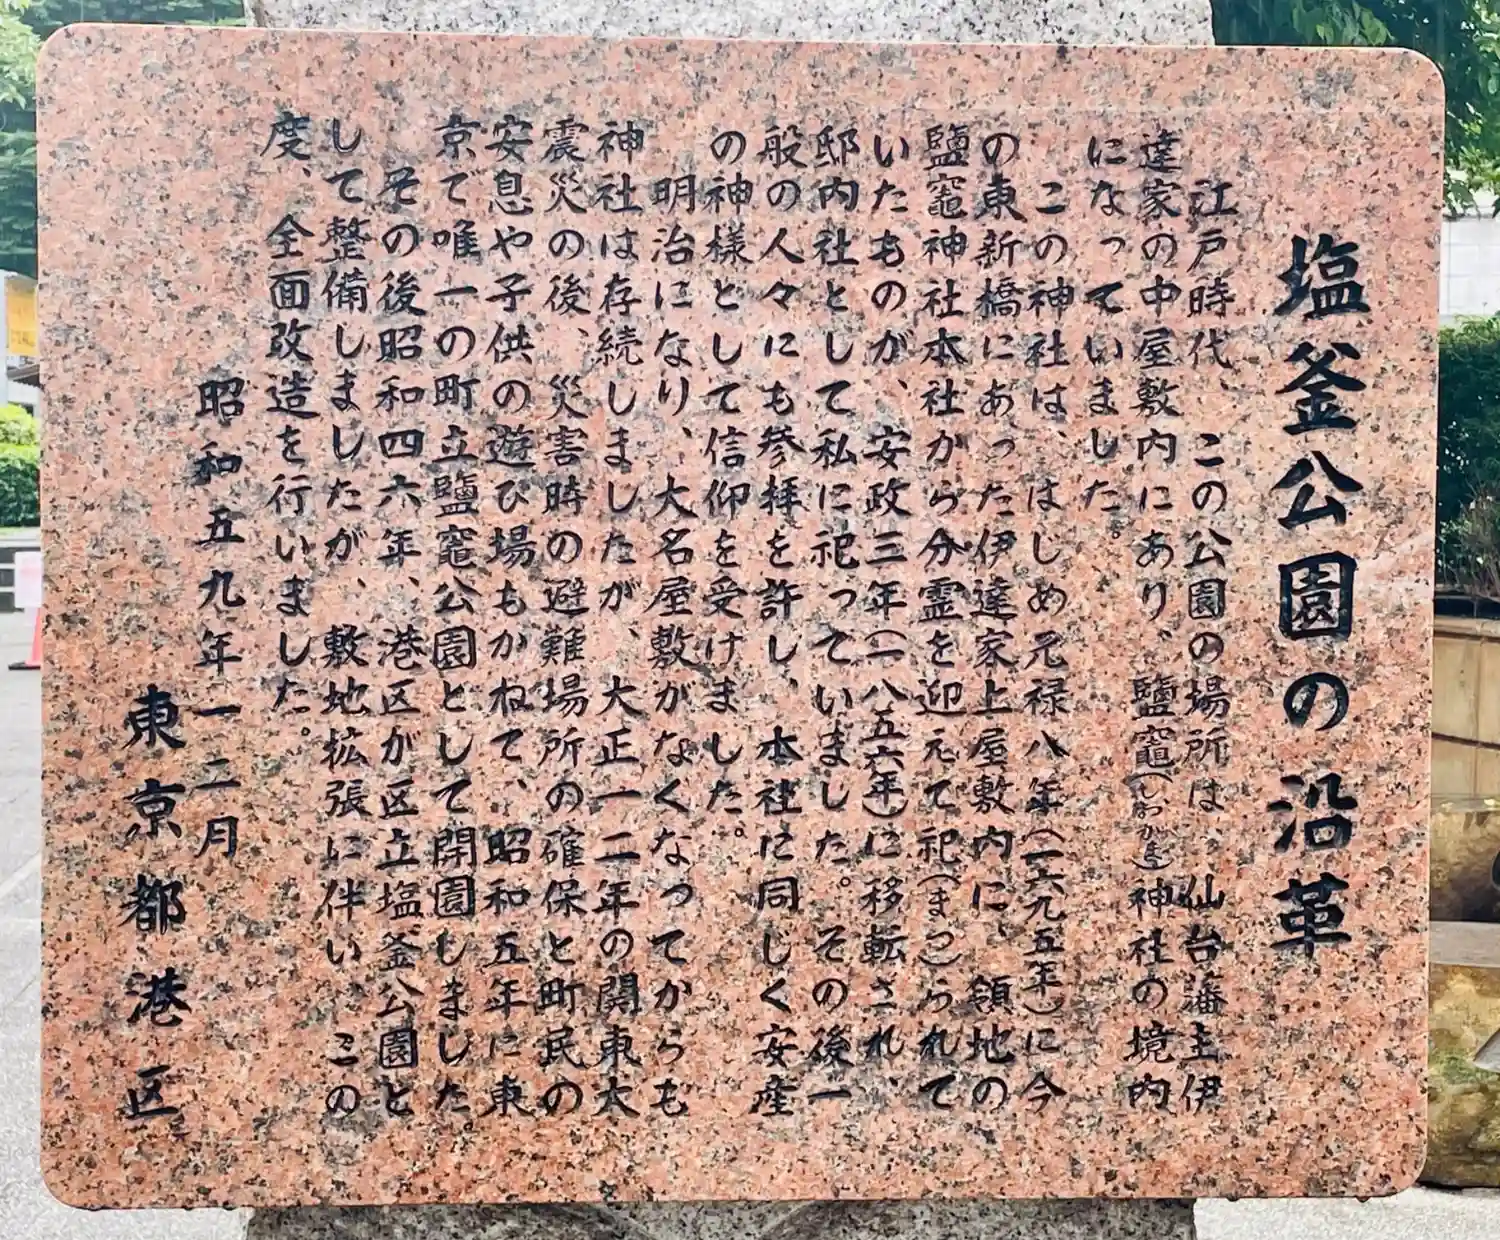 塩釜公園の沿革
江戸時代、この公園の場所は、仙台藩主伊
達家の中屋敷内にあり、鹽竈(しおがま)神社の境内
になっていました。
この神社は、はじめ元禄八年(一六九五年)に今
の東新橋にあった伊達家上屋敷内に、領地の
鹽竈神社本社から分霊を迎えて祀(まつ)られて
いたものが、安政三年(一八五六年)に移転され、
邸内社として私に祀っていました。その後一
般の人々にも参拝を許し、本社と同じく安産
の神様として信仰を受けました。
明治になり、大名屋敷がなくなってからも
神社は存続しましたが、大正一二年の関東大
震災の後、災害時の避難場所の確保と町民の
安息や子供の遊び場もかねて、昭和五年に東
京で唯一の町立鹽竈公園として開園しました。
その後昭和四六年、港区が区立塩釜公園と
して整備しましたが、敷地拡張に伴い、この
度、全面改造を行いました。
昭和五九年一二月
東京都港区